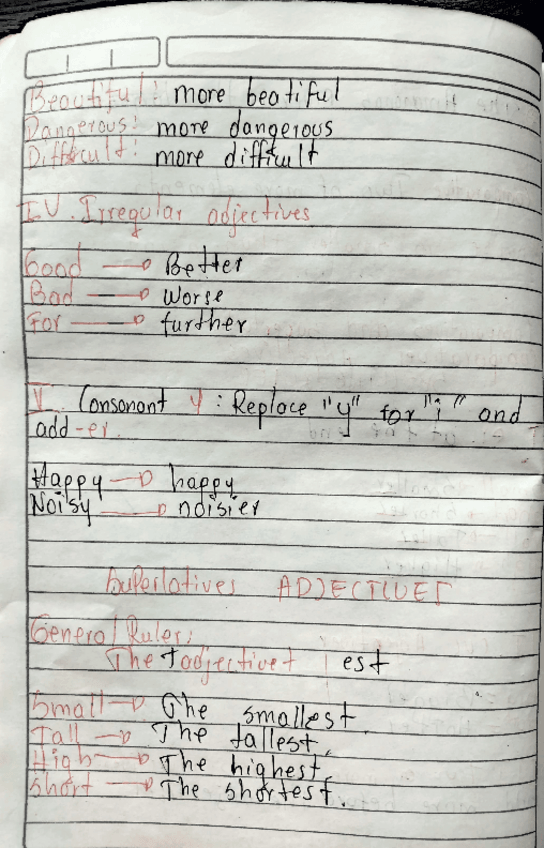 Beautiful: more beatiful
Dangerous: more dangerous
Difficult: more difficult
IV. Irregular adjectives
Good → Better
Bad → Worse
For → further
V. Consonant Y: Replace "y" for "i" and
add -er.
Happy → happy
Noisy → noisier
Superlatives ADJECTIVES
General Rules:
The + adjective + est
Small → The smallest.
Tall → The tallest.
High → The highest.
Short → The shortest.